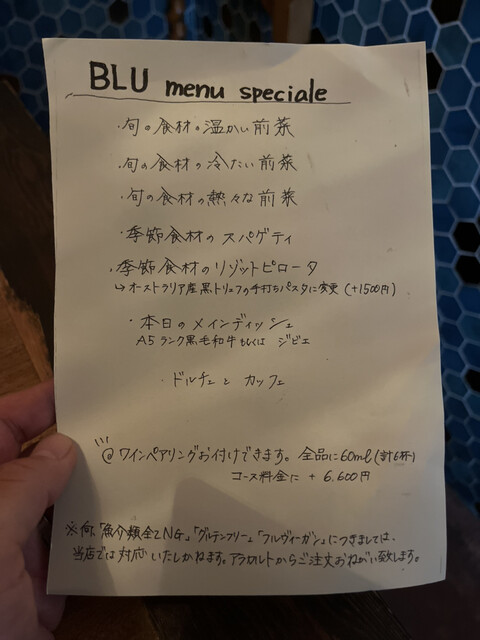 BLU menu speciale
・旬の食材の温かい前菜
・旬の食材の冷たい前菜
・旬の食材の熱々な前菜
・季節食材のスパゲティ
・季節食材のリゾットピロータ
↳オーストラリア産黒トリュフの手打ちパスタに変更(+1500円)
・本日のメインディッシュ
A5ランク黒毛和牛もしくは ジビエ
・ドルチェと カッフェ
@ワインペアリングお付けできます。全品に60ml(計6杯)
コース料金に + 6,600円
※尚、「魚介類全てNG」「グルテンフリー」「フルヴィーガン」につきましては、
当店では対応いたしかねます。アラカルトからご注文おねがい致します。